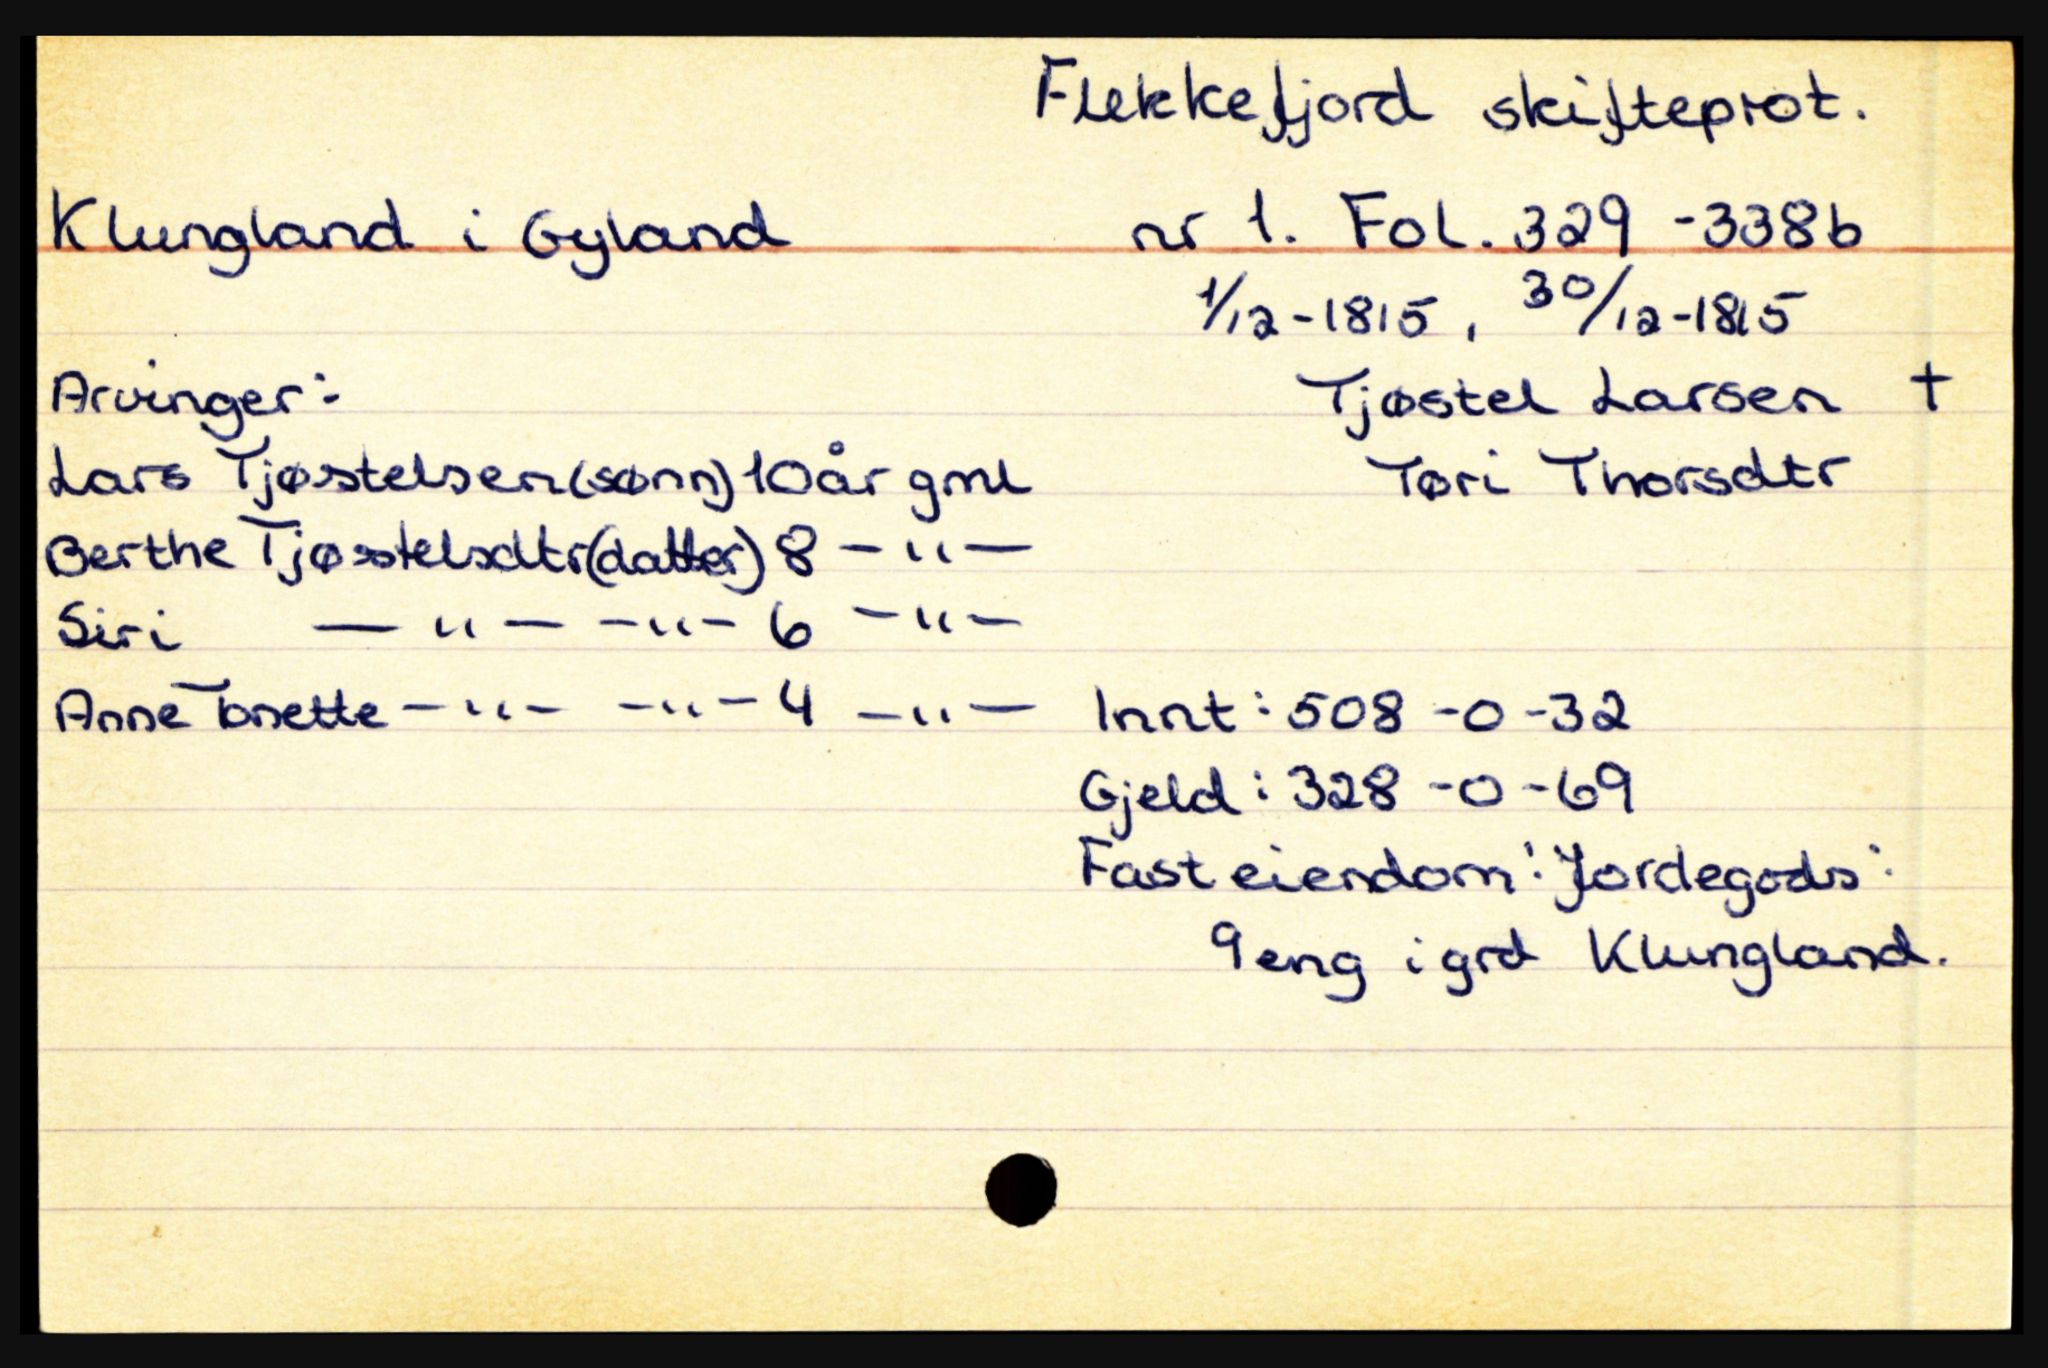 Flekkefjord skifteprot.
Klungland i Gyland nr 1. Fol. 329 - 338b
1/12-1815, 30/12-1815
Arvinger: Tjøstel Larsen +
Lars Tjøstelsen (sønn) 10 år gml Tøri Thorsdtr
Berthe Tjøstelsdtr (datter) 8 — " —
Siri — " — — " — 6 — " —
Anne Tonette — " — — " — 4 — " — Innt: 508 - 0 - 32
Gjeld: 328 - 0 - 69
Fast eiendom: Jordegods:
9 eng i grd Klungland.